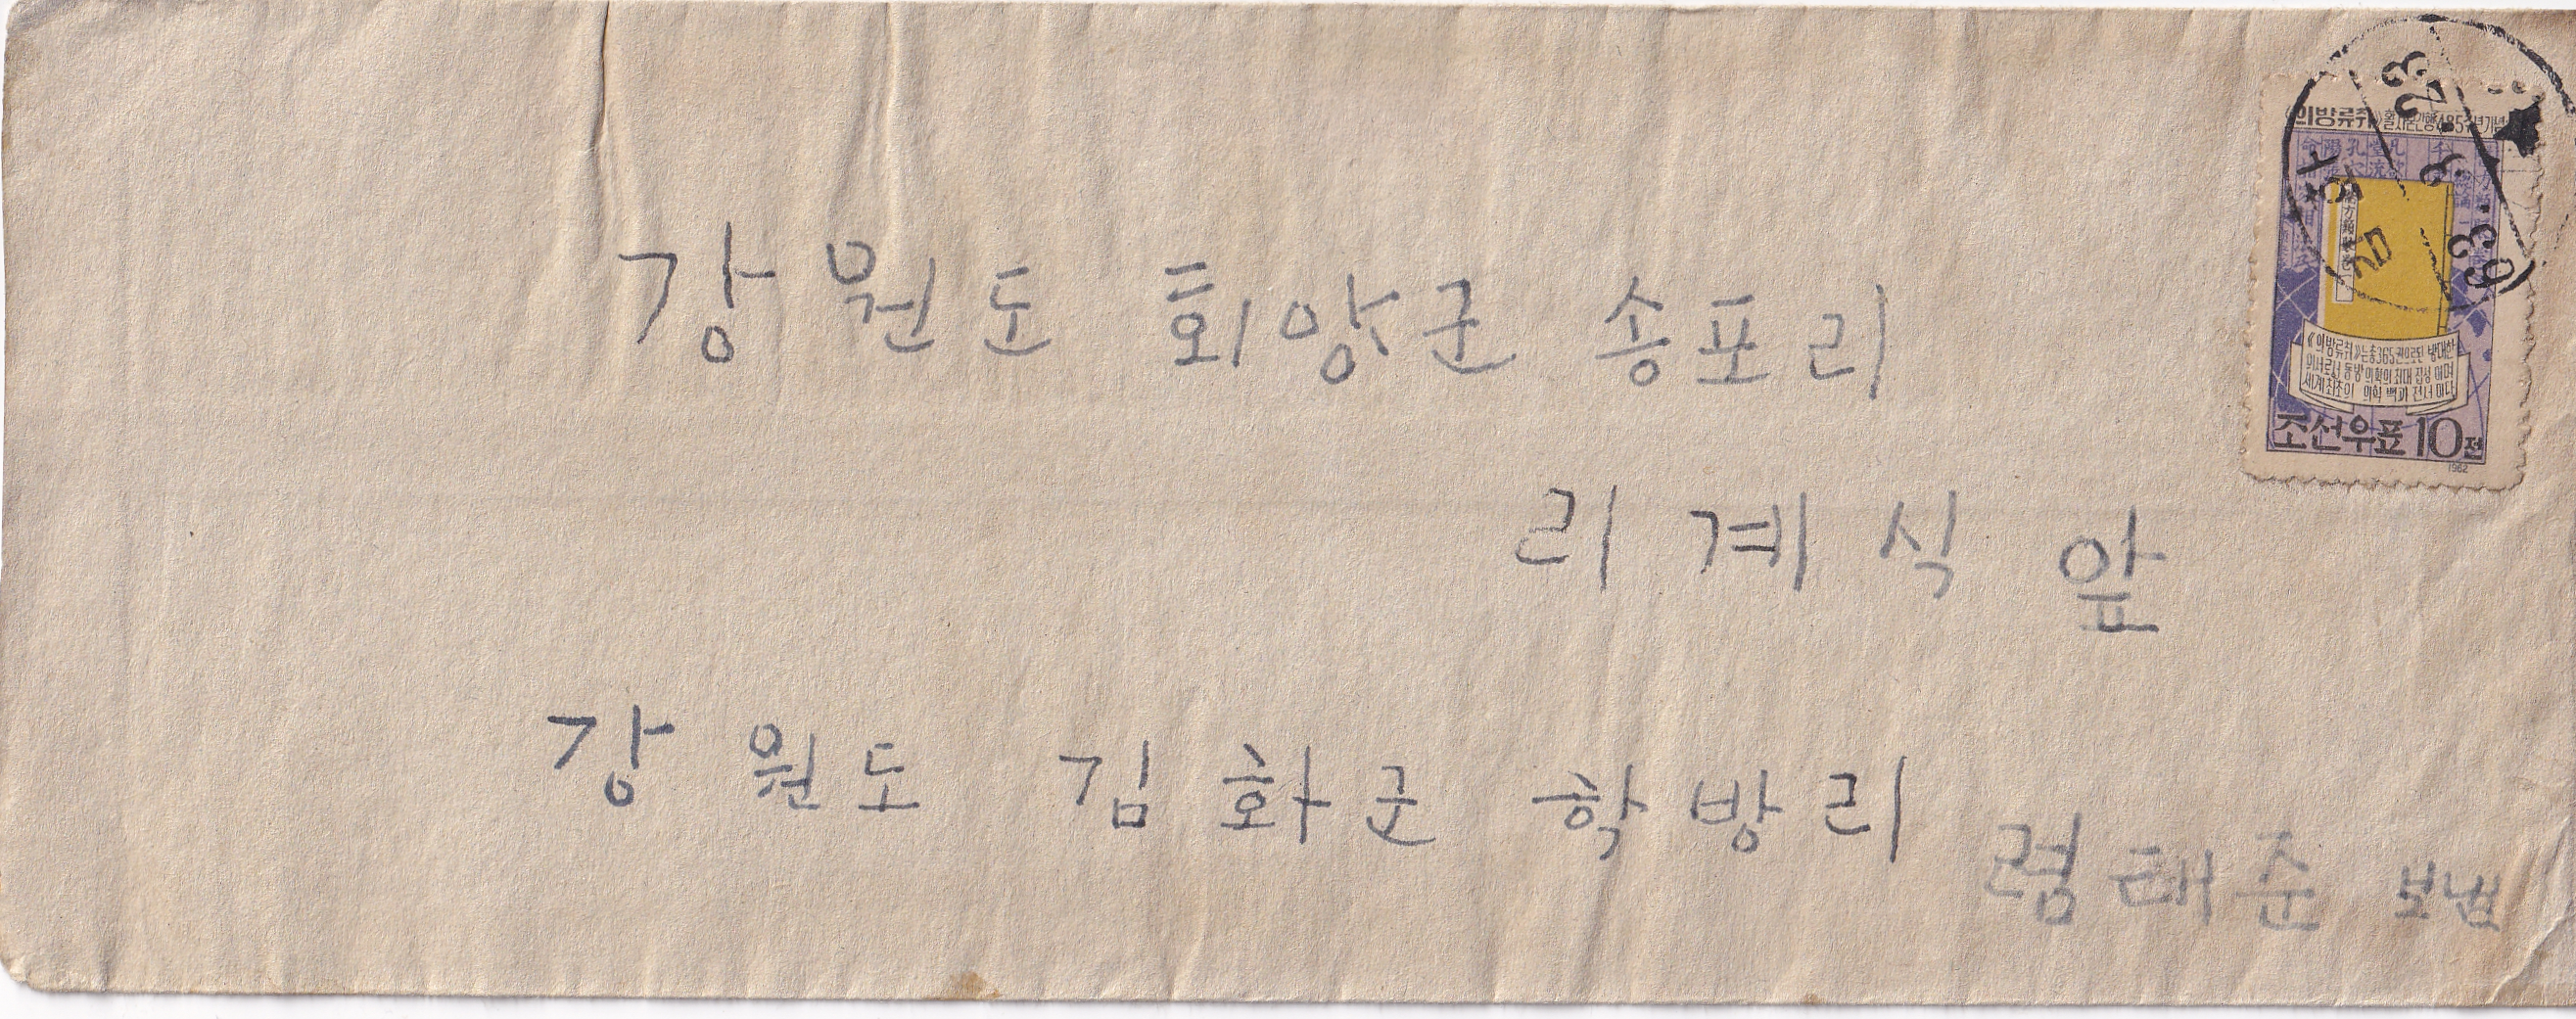 강원도 회양군 송포리
리계식 앞
강원도 김화군 학방리
렴태준 보냄
《의방류취》 활자본간행 485주년기념
63.3.23
《의방류취》는 총365권으로된 방대한
의서로서 동방의학의 최대 집성이며
세계최초의 의학 백과 전서이다
조선우표 10전
1962